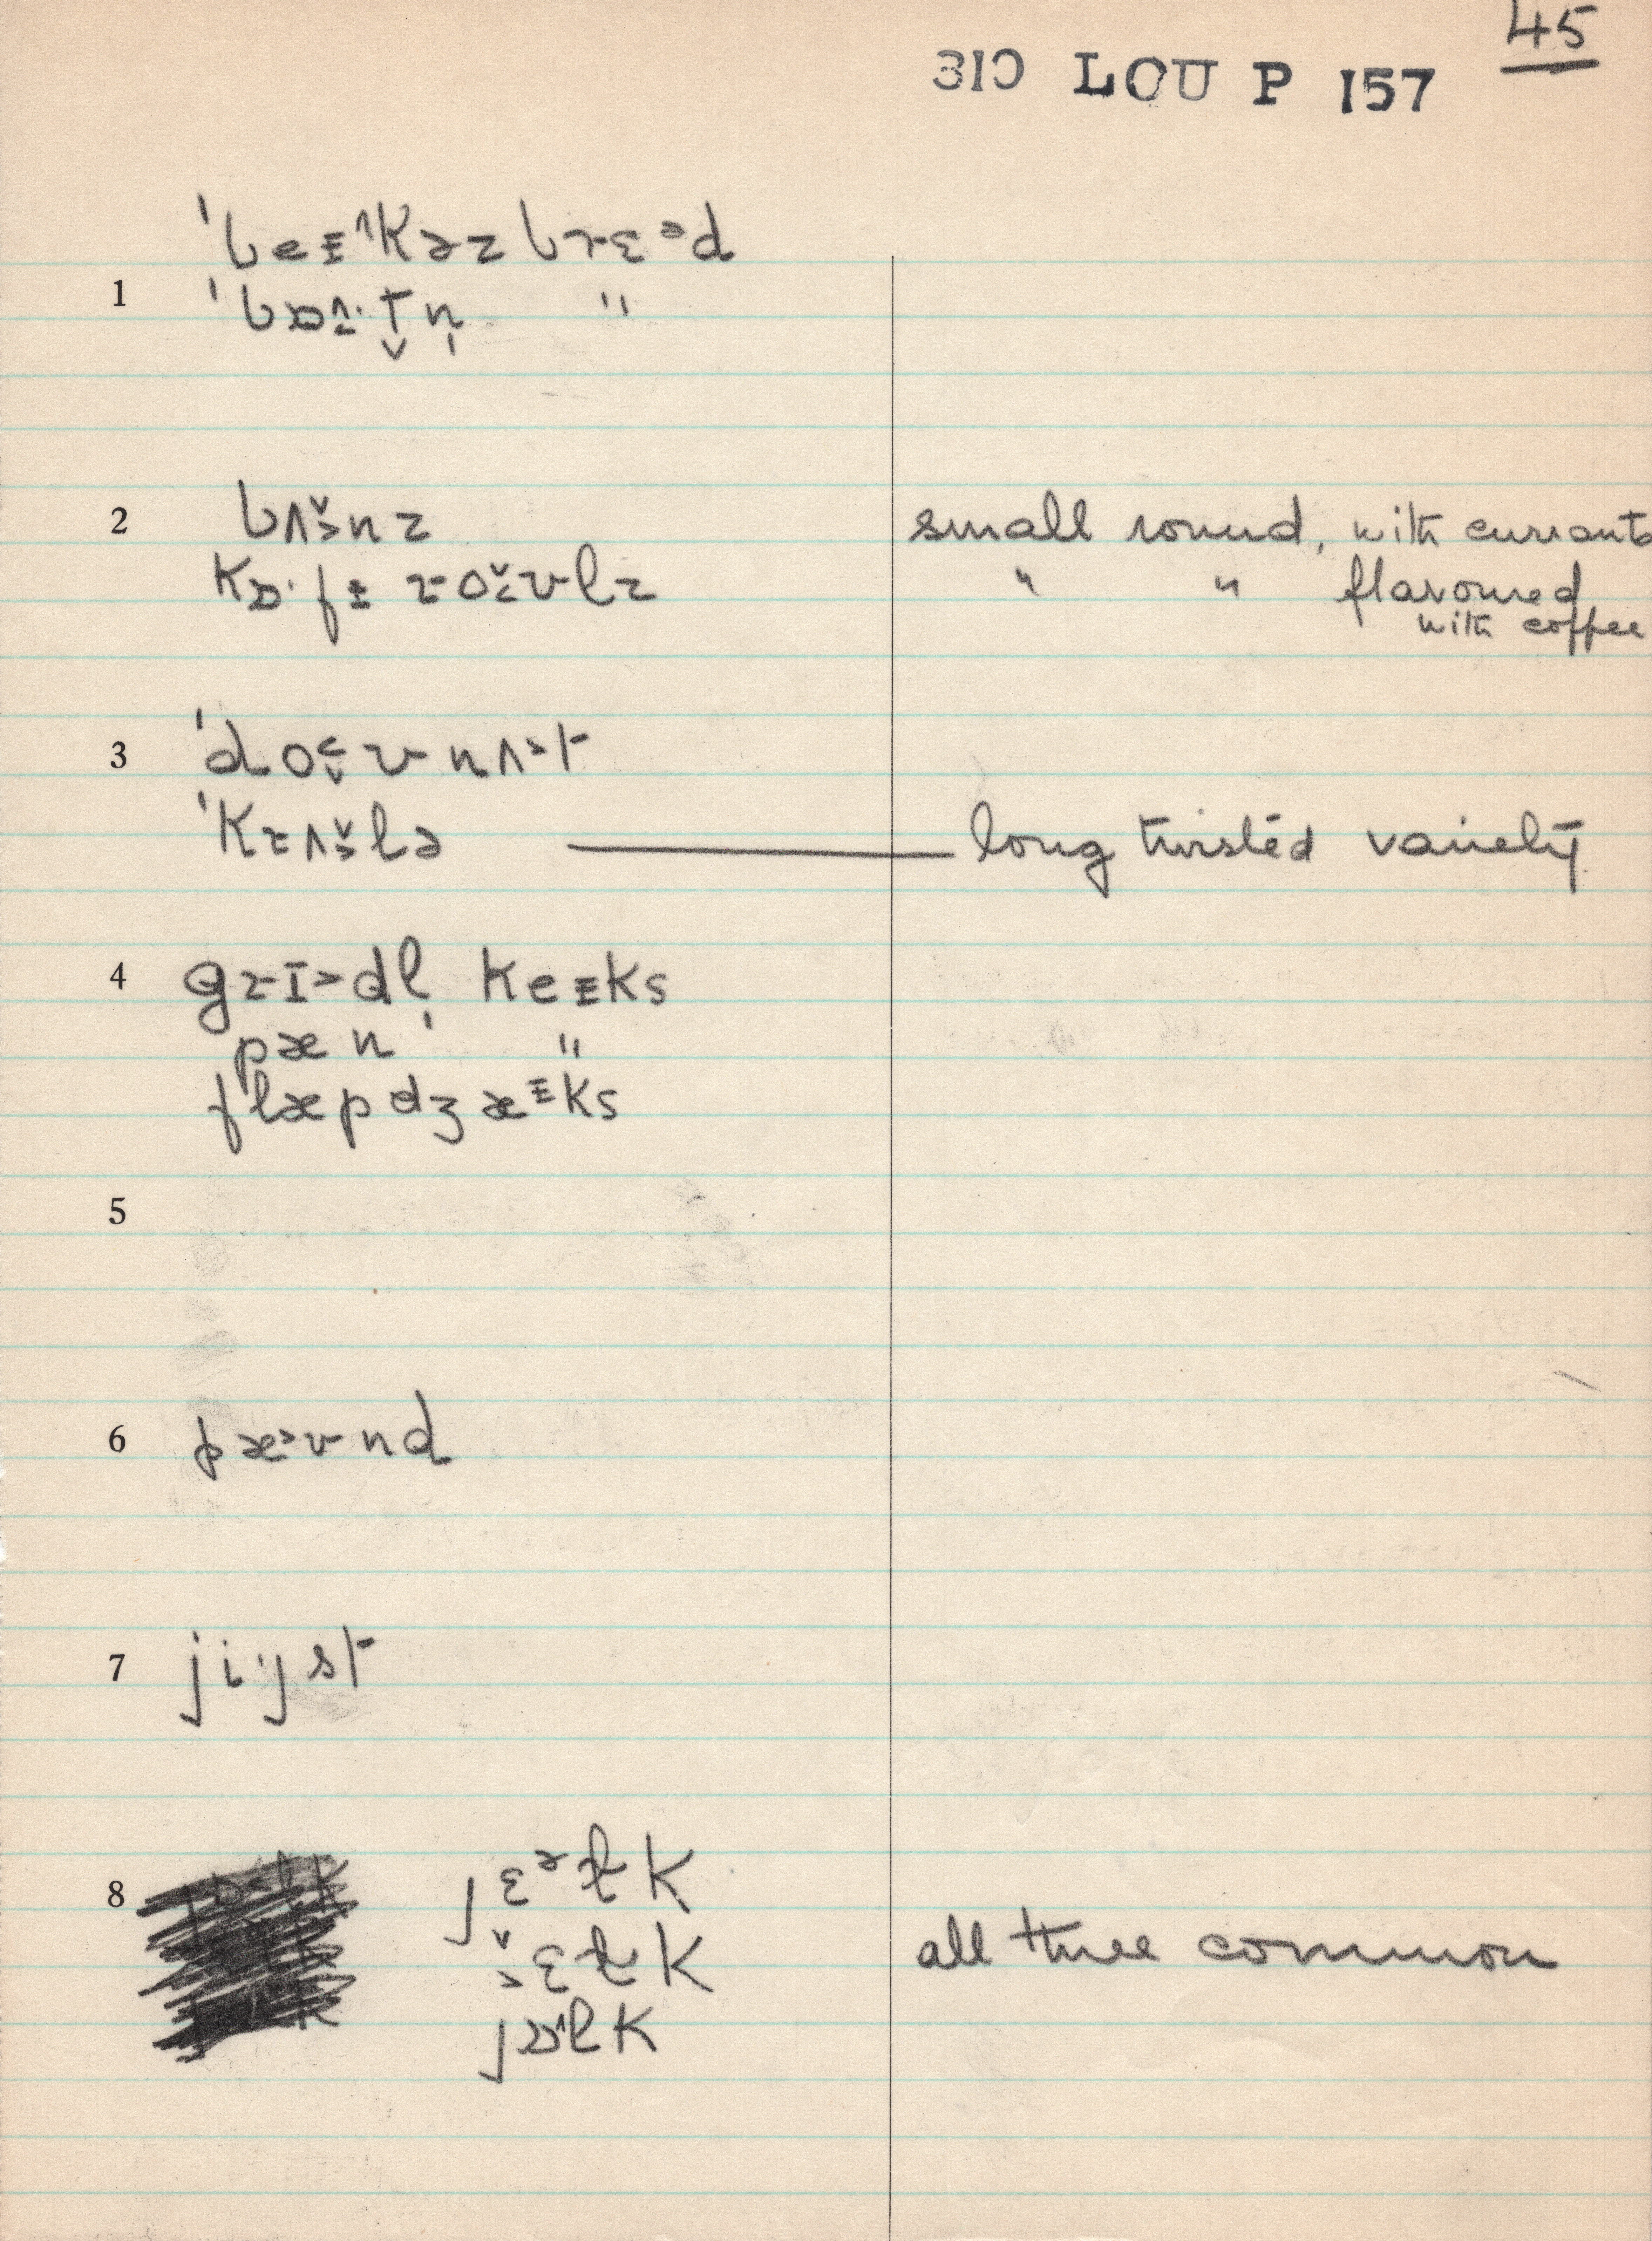 45
310 LOU P 157
ˈbeɪkəz brɛᵊd
1 ˈbɒʌ·t̬n̩ "
2 bʌnz small round, with currants
kɒ·fɪ roʊlz " " flavoured
with coffee
3 ˈdoʊnʌt
ˈkrʌlə long twisted variety
4 grɪdl̩ keɪks
pæn "
flæpdʒæks
5
6 pæʊnd
7 ji·jst
8 jɛᵊɫk
ɛɫk all three common
jɒlk